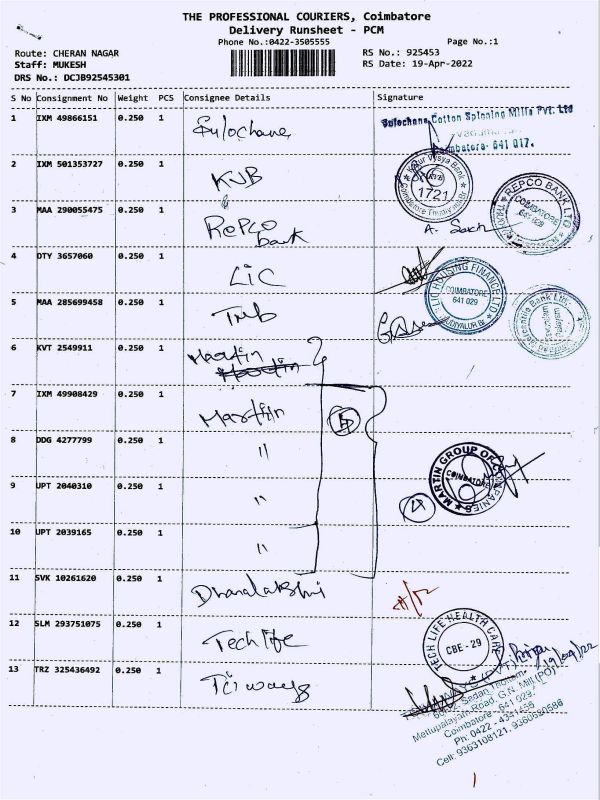 THE PROFESSIONAL COURIERS, Coimbatore
Delivery Runsheet - PCM
Phone No.:0422-3505555
Page No.:1
Route: CHERAN NAGAR
RS No.: 925453
Staff: MUKESH
RS Date: 19-Apr-2022
DRS No.: DCJB92545301
S No Consignment No Weight PCS Consignee Details Signature
1 IXM 49866151 0.250 1 Sulochana
Sulochana Cotton Spinning Mills Pvt. Ltd
641 017.
2 IXM 501353727 0.250 1 KVB
Karur Vysya Bank
1721
3 MAA 290055475 0.250 1 Repco
bank
REPCO BANK LTD
COIMBATORE
4 DTY 3657060 0.250 1 LIC
LIC HOUSING FINANCE LTD
COIMBATORE
641 029
5 MAA 285699458 0.250 1 Tmb
Mercantile Bank Ltd.
6 KVT 2549911 0.250 1
7 IXM 49908429 0.250 1 Martin
5
8 DDG 4277799 0.250 1 "
MARTIN GROUP OF COMPANIES
COIMBATORE
9 UPT 2040310 0.250 1 "
10 UPT 2039165 0.250 1 "
11 SVK 10261620 0.250 1 Dhanalakshmi
12 SLM 293751075 0.250 1 Tech life
TECH LIFE HEALTH CARE
CBE - 29
13 TRZ 325436492 0.250 1 Triways
19/04/22
Mettupalayam Road, G.N. Mill (PO)
Coimbatore - 641 029.
Ph: 0422 - 4341436
Cell: 9363108121, 9360680586